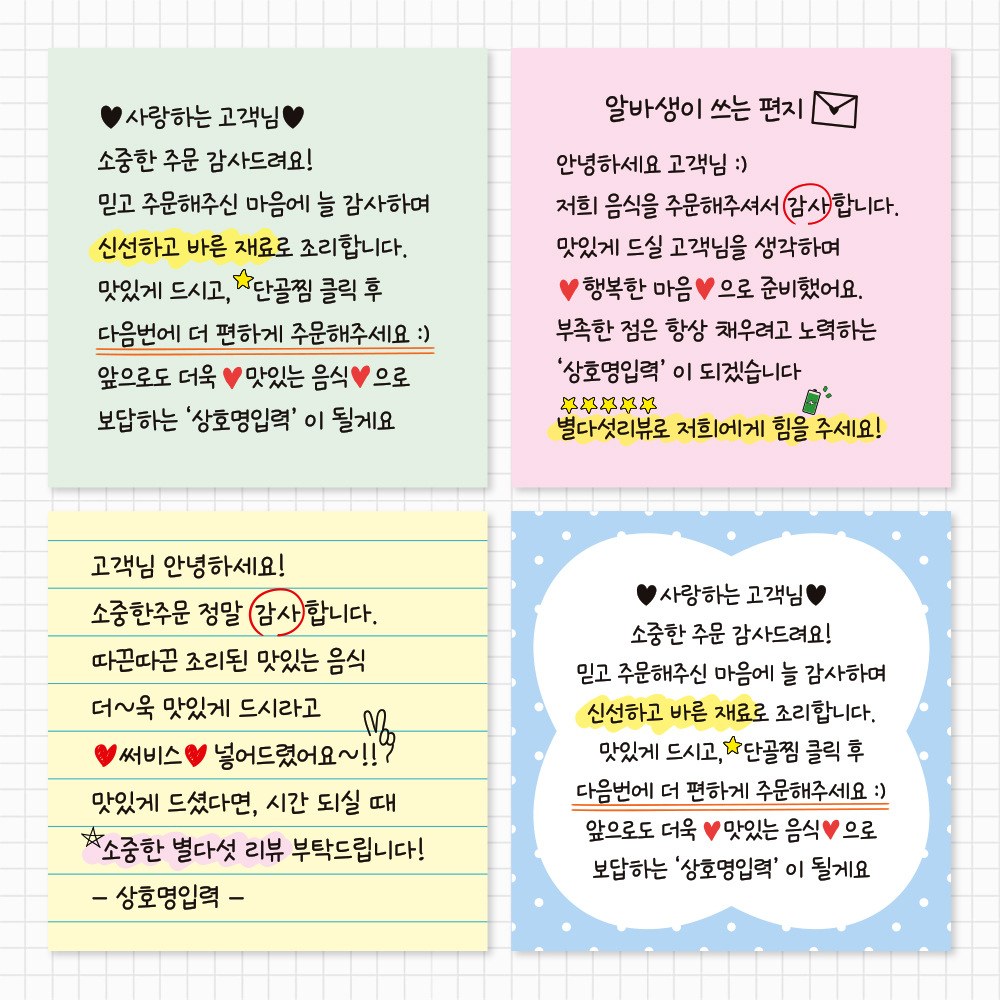 ♥사랑하는 고객님♥
소중한 주문 감사드려요!
믿고 주문해주신 마음에 늘 감사하며
신선하고 바른 재료로 조리합니다.
맛있게 드시고,☆단골찜 클릭 후
다음번에 더 편하게 주문해주세요 :)
앞으로도 더욱 ♥맛있는 음식♥으로
보답하는 ‘상호명입력’ 이 될게요
알바생이 쓰는 편지
안녕하세요 고객님 :)
저희 음식을 주문해주셔서 감사합니다.
맛있게 드실 고객님을 생각하며
♥행복한 마음♥으로 준비했어요.
부족한 점은 항상 채우려고 노력하는
‘상호명입력’ 이 되겠습니다
☆☆☆☆☆
별다섯리뷰로 저희에게 힘을 주세요!
고객님 안녕하세요!
소중한주문 정말 감사합니다.
따끈따끈 조리된 맛있는 음식
더~욱 맛있게 드시라고
♥써비스♥ 넣어드렸어요~!!
맛있게 드셨다면, 시간 되실 때
☆소중한 별다섯 리뷰 부탁드립니다!
– 상호명입력 –
♥사랑하는 고객님♥
소중한 주문 감사드려요!
믿고 주문해주신 마음에 늘 감사하며
신선하고 바른 재료로 조리합니다.
맛있게 드시고,☆단골찜 클릭 후
다음번에 더 편하게 주문해주세요 :)
앞으로도 더욱 ♥맛있는 음식♥으로
보답하는 ‘상호명입력’ 이 될게요